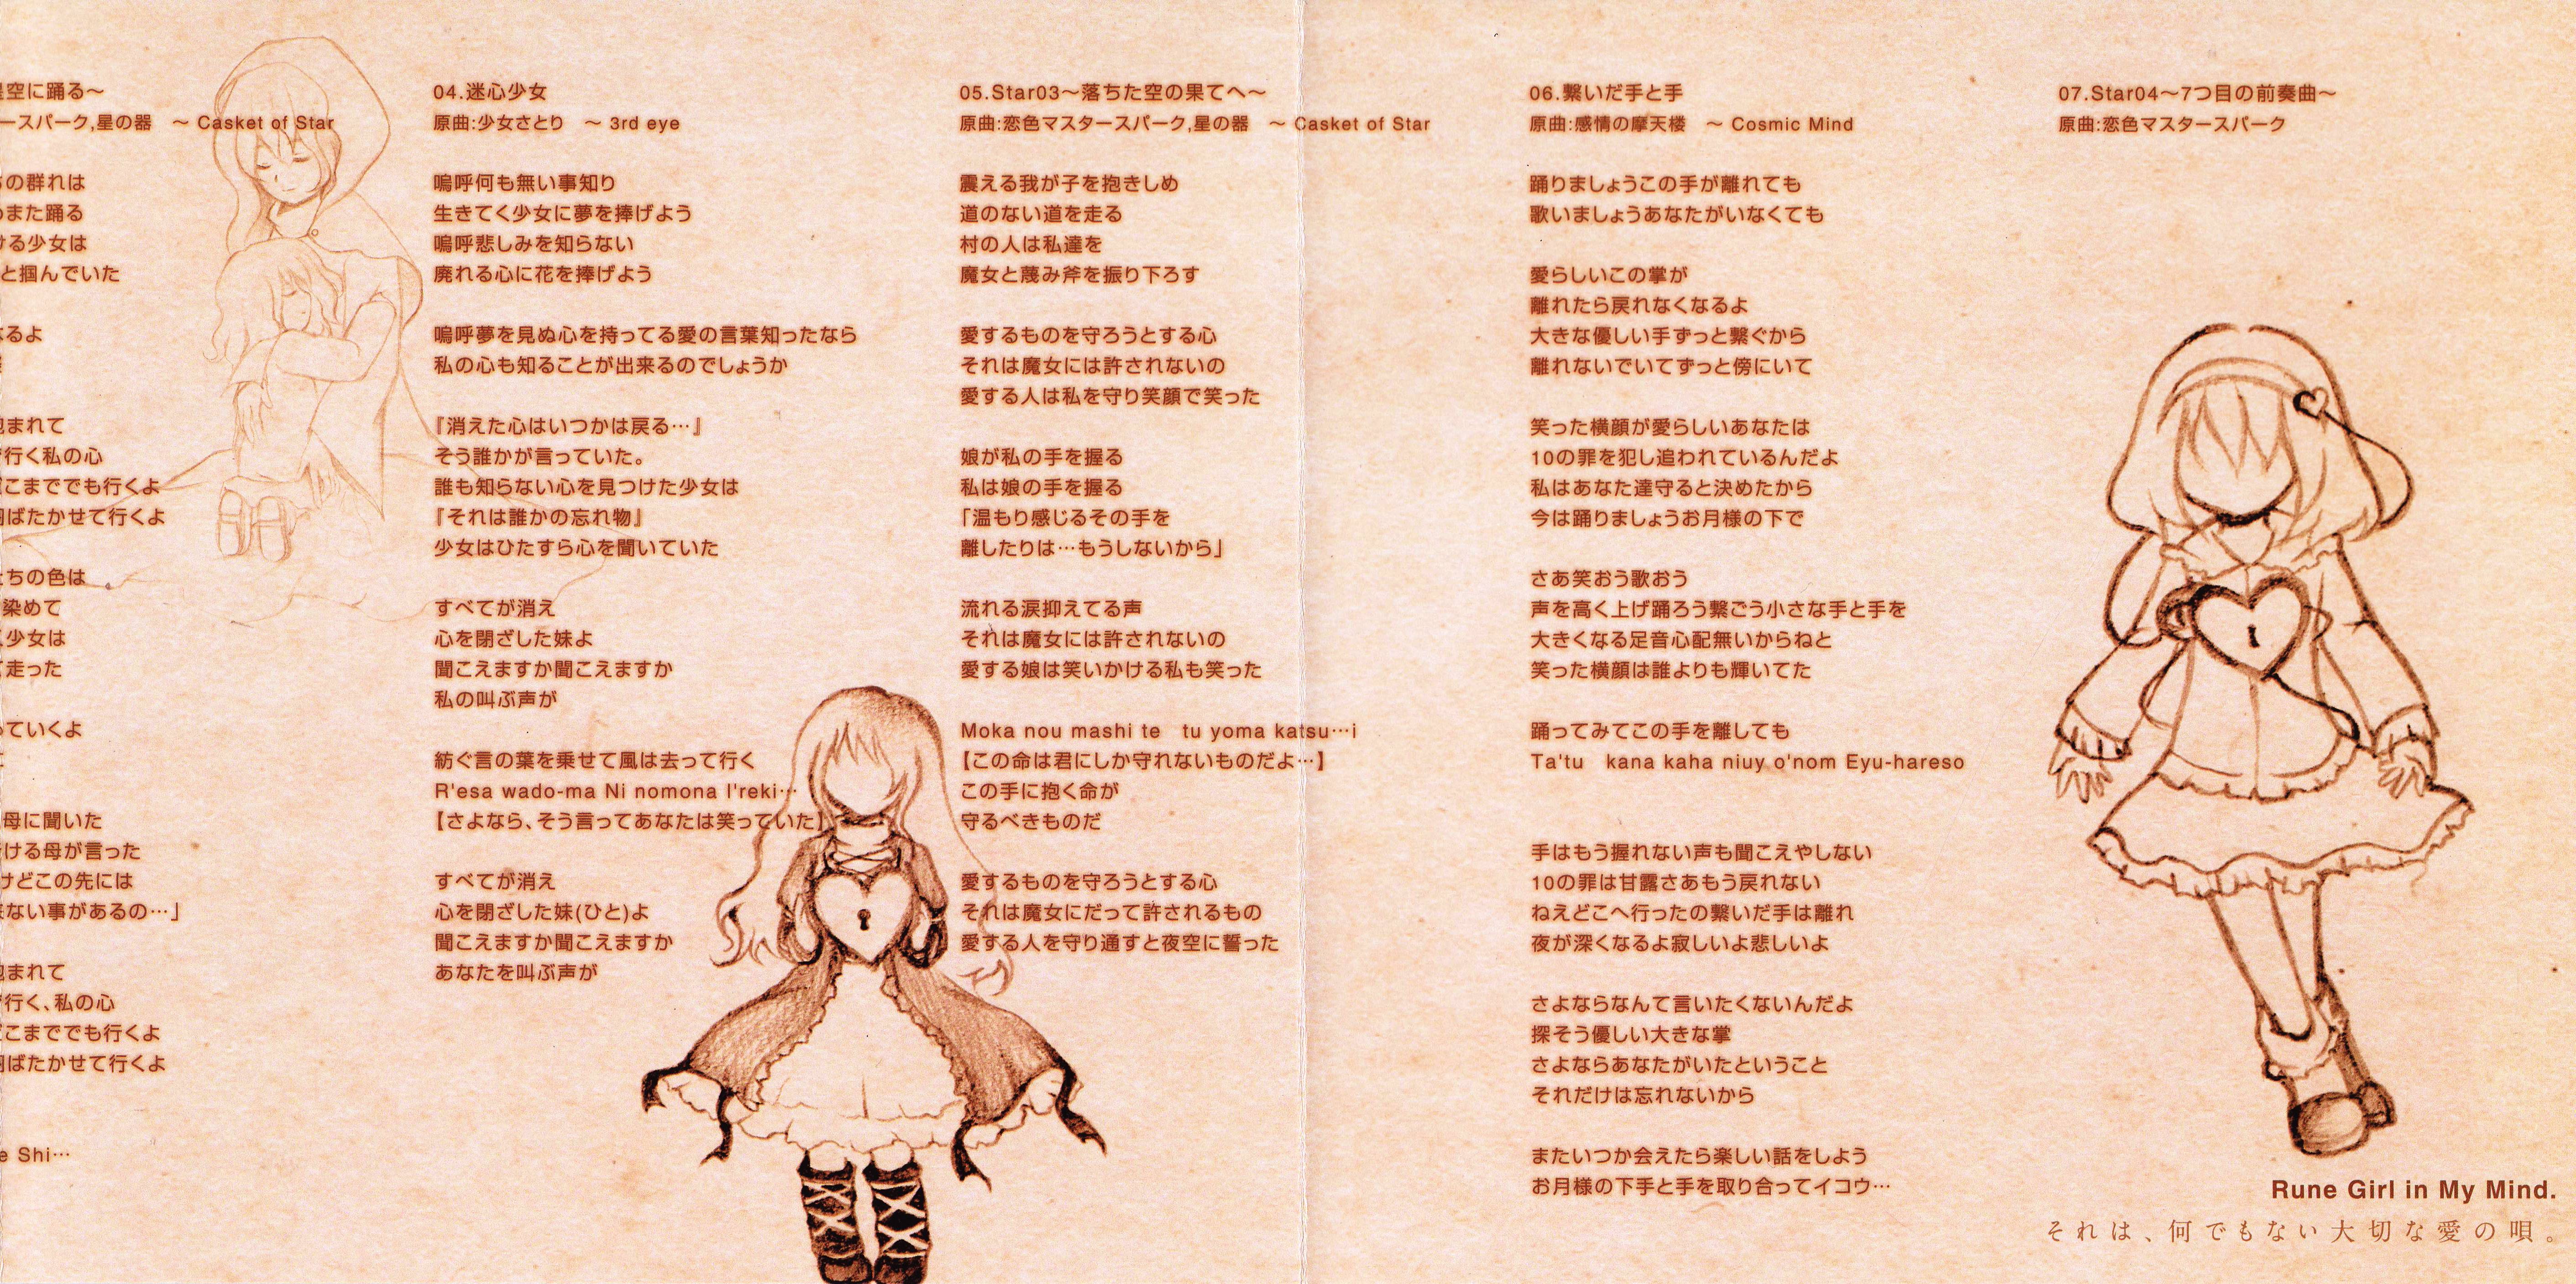 星空に踊る～
ースパーク,星の器　～ Casket of Star
の群れは
また踊る
ける少女は
と掴んでいた
なるよ
包まれて
行く私の心
どこまででも行くよ
羽ばたかせて行くよ
たちの色は
染めて
少女は
走った
っていくよ
に
母に聞いた
ける母が言った
けどこの先には
来ない事があるの…」
包まれて
行く、私の心
どこまででも行くよ
羽ばたかせて行くよ
e Shi…
04.迷心少女
原曲:少女さとり　～ 3rd eye
嗚呼何も無い事知り
生きてく少女に夢を捧げよう
嗚呼悲しみを知らない
廃れる心に花を捧げよう
嗚呼夢を見ぬ心を持ってる愛の言葉知ったなら
私の心も知ることが出来るのでしょうか
『消えた心はいつかは戻る…』
そう誰かが言っていた。
誰も知らない心を見つけた少女は
『それは誰かの忘れ物』
少女はひたすら心を聞いていた
すべてが消え
心を閉ざした妹よ
聞こえますか聞こえますか
私の叫ぶ声が
紡ぐ言の葉を乗せて風は去って行く
R'esa wado-ma Ni nomona I'reki…
【さよなら、そう言ってあなたは笑っていた】
すべてが消え
心を閉ざした妹(ひと)よ
聞こえますか聞こえますか
あなたを叫ぶ声が
05.Star03～落ちた空の果てへ～
原曲:恋色マスタースパーク,星の器　～ Casket of Star
震える我が子を抱きしめ
道のない道を走る
村の人は私達を
魔女と蔑み斧を振り下ろす
愛するものを守ろうとする心
それは魔女には許されないの
愛する人は私を守り笑顔で笑った
娘が私の手を握る
私は娘の手を握る
「温もり感じるその手を
離したりは…もうしないから」
流れる涙抑えてる声
それは魔女には許されないの
愛する娘は笑いかける私も笑った
Moka nou mashi te　tu yoma katsu…i
【この命は君にしか守れないものだよ…】
この手に抱く命が
守るべきものだ
愛するものを守ろうとする心
それは魔女にだって許されるもの
愛する人を守り通すと夜空に誓った
06.繋いだ手と手
原曲:感情の摩天楼　～ Cosmic Mind
踊りましょうこの手が離れても
歌いましょうあなたがいなくても
愛らしいこの掌が
離れたら戻れなくなるよ
大きな優しい手ずっと繋ぐから
離れないでいてずっと傍にいて
笑った横顔が愛らしいあなたは
10の罪を犯し追われているんだよ
私はあなた達守ると決めたから
今は踊りましょうお月様の下で
さあ笑おう歌おう
声を高く上げ踊ろう繋ごう小さな手と手を
大きくなる足音心配無いからねと
笑った横顔は誰よりも輝いてた
踊ってみてこの手を離しても
Ta'tu　kana kaha niuy o'nom Eyu-hareso
手はもう握れない声も聞こえやしない
10の罪は甘露さあもう戻れない
ねえどこへ行ったの繋いだ手は離れ
夜が深くなるよ寂しいよ悲しいよ
さよならなんて言いたくないんだよ
探そう優しい大きな掌
さよならあなたがいたということ
それだけは忘れないから
またいつか会えたら楽しい話をしよう
お月様の下手と手を取り合ってイコウ…
07.Star04～7つ目の前奏曲～
原曲:恋色マスタースパーク
Rune Girl in My Mind.
それは、何でもない大切な愛の唄。